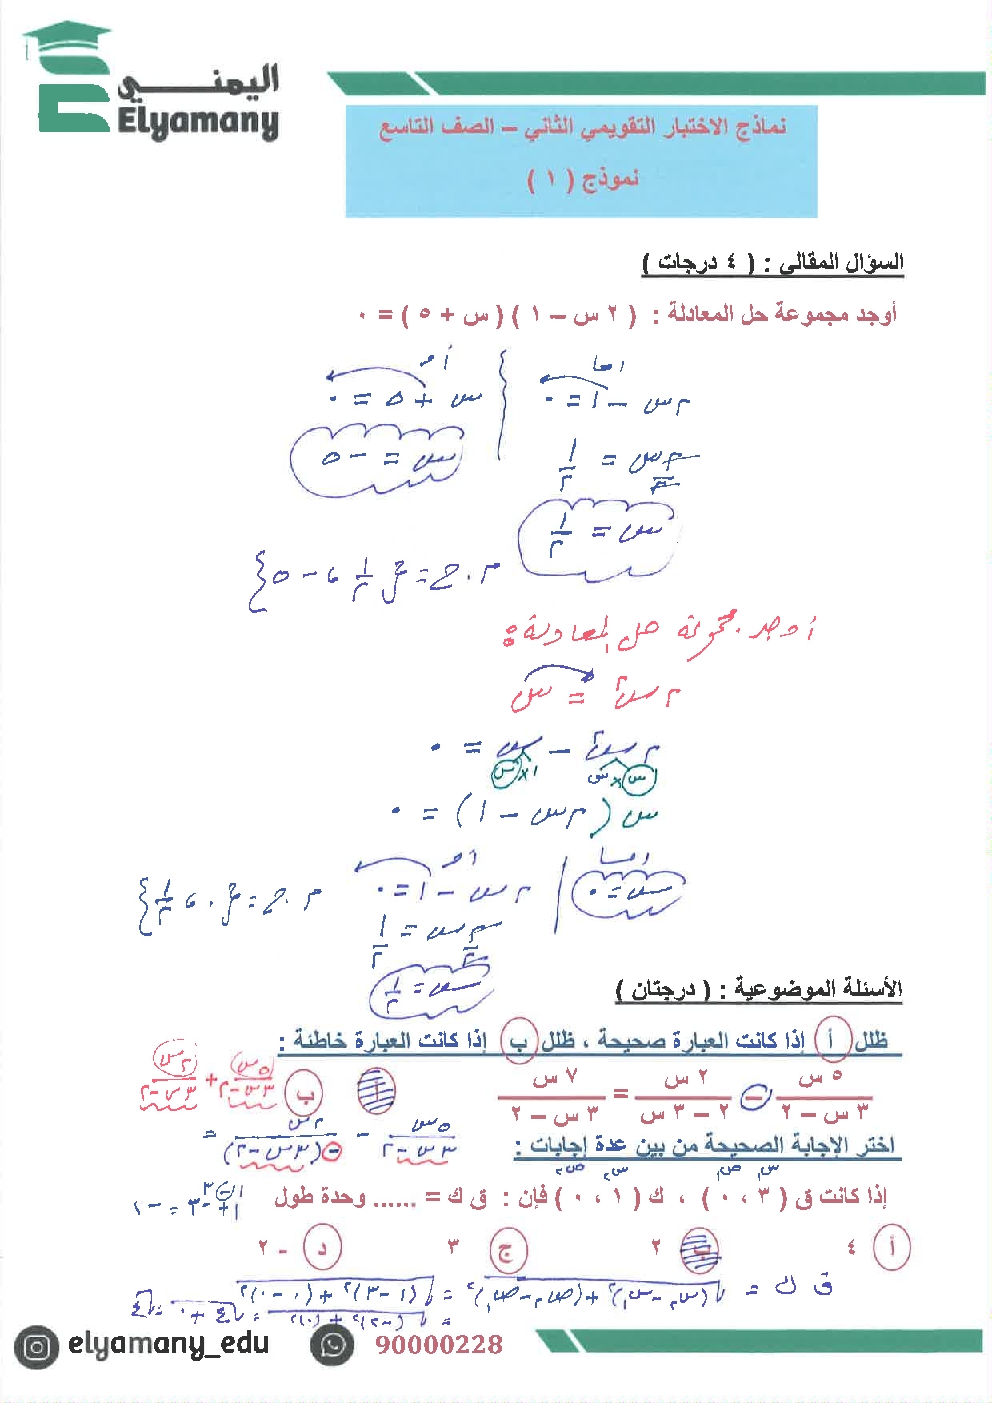 اليمنـــي
Elyamany
نماذج الاختبار التقويمي الثاني – الصف التاسع
نموذج ( ١ )
السؤال المقالي : ( ٤ درجات )
أوجد مجموعة حل المعادلة : ( ٢ س – ١ ) ( س + ٥ ) = ٠
إما
أو
٢س – ١ = ٠
س + ٥ = ٠
٢س/٢ = ١/٢
س = –٥
س = ١/٢
م.ح = { ١/٢ ، –٥ }
أوجد مجموعة حل المعادلة :
٢س² = س
٢س² – س = ٠
س×س
١×س
س ( ٢س – ١ ) = ٠
إما
أو
س = ٠
٢س – ١ = ٠
م.ح = { ٠ ، ١/٢ }
٢س/٢ = ١/٢
س = ١/٢
الأسئلة الموضوعية : ( درجتان )
ظلل أ إذا كانت العبارة صحيحة ، ظلل ب إذا كانت العبارة خاطئة :
٥ س / ٣ س – ٢ – ٢ س / ٢ – ٣ س = ٧ س / ٣ س – ٢
أ ب
٥س / ٣س–٢ + ٢س / ٣س–٢
٥س / ٣س–٢ – ٢س / –(٣س–٢) =
اختر الإجابة الصحيحة من بين عدة إجابات :
س١ ص١ س٢ ص٢
إذا كانت ق ( ٣ ، ٠ ) ، ك ( ١ ، ٠ ) فإن : ق ك = ...... وحدة طول
أ ٤ ب ٢ ج ٣ د - ٢
ق ك = √(س٢–س١)² + (ص٢–ص١)² = √(١–٣)² + (٠–٠)²
= √(–٢)² + (٠)² = √٤ + ٠ = √٤
elyamany_edu
90000228